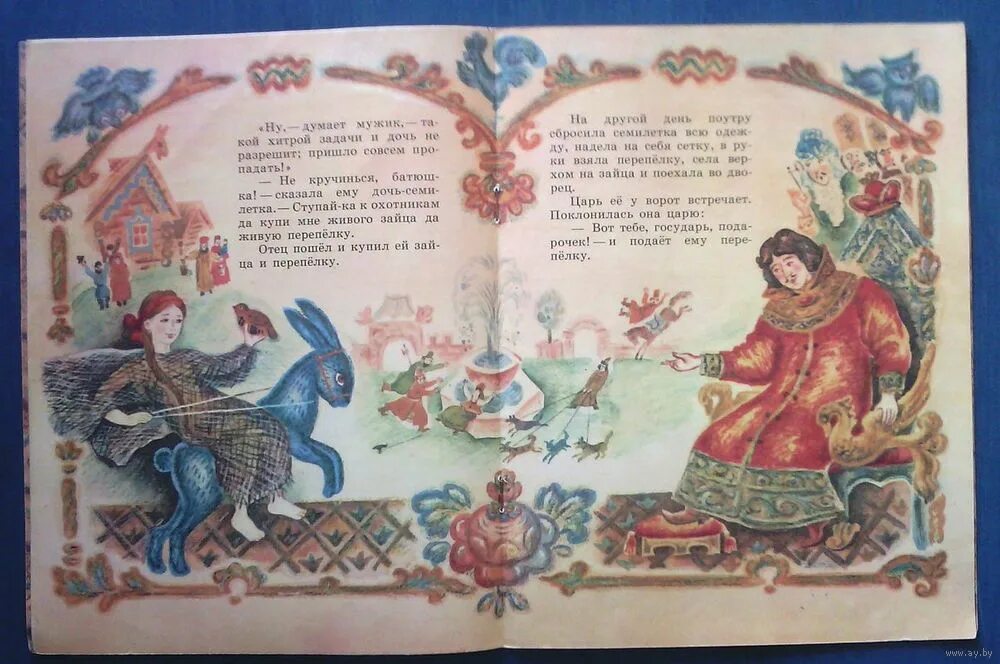 «Ну,— думает мужик,— та-
кой хитрой задачи и дочь не
разрешит; пришло совсем про-
падать!»
— Не кручинься, батюш-
ка! — сказала ему дочь-семи-
летка.— Ступай-ка к охотникам
да купи мне живого зайца да
живую перепёлку.
Отец пошёл и купил ей зай-
ца и перепёлку.
На другой день поутру
сбросила семилетка всю одеж-
ду, надела на себя сетку, в ру-
ки взяла перепёлку, села вер-
хом на зайца и поехала во дво-
рец.
Царь её у ворот встречает.
Поклонилась она царю:
— Вот тебе, государь, пода-
рочек! — и подаёт ему пере-
пёлку.
www.ay.by